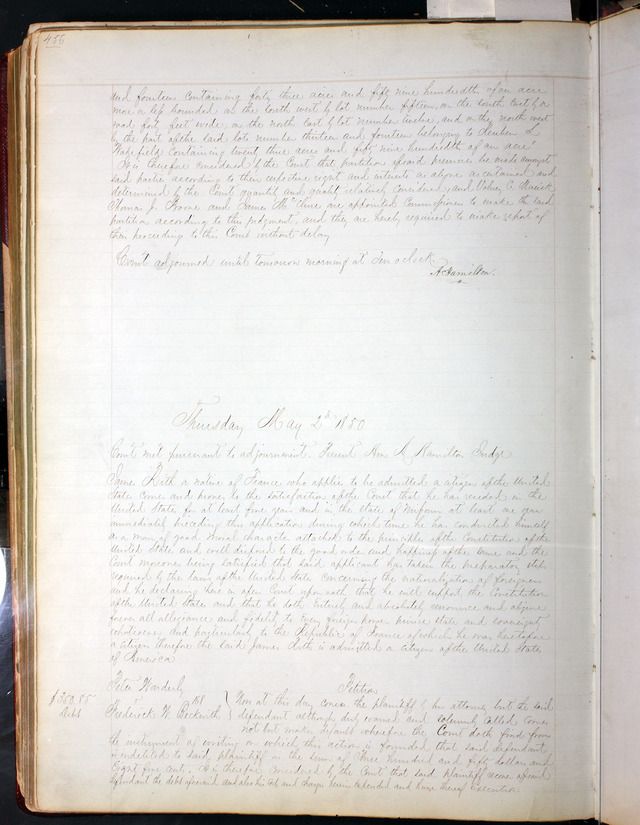 456
and fourteen containing forty three acres and fifty nine hundredths of an acre
more or less bounded on the South west by lot number fifteen, on the South East by a
road forty feet wide on the north East by lot number twelve, and on the north west
on the part of the said lots number thirteen and fourteen belonging to Reuben L
containing twenty three acres and fifty nine hundredths of an acre.
It is therefore considered by the Court that partition of said premises be made amongst
said parties according to their respective rights and interests as above ascertained and
determined by the Court quantity and quality relatively considered, and
J. and James are appointed Commissioners to make the said
partition according to this judgment and they are hereby required to make report of
their proceeding to this Court without delay
Court adjourned until tomorrow morning at Ten oclock.
A Hamilton.
Thursday May 2d 1850
Court met pursuant to adjournment. Present Hon A Hamilton Judge
James Rith a native of France who applies to be admitted a citizen of the United
States comes and proves to the satisfaction of the Court that he has resided in the
United States for at least five years and in the state of Missouri at least one year
immediately preceding this application during which time he has conducted himself
as a man of good moral character attached to the principles of the Constitution of the
United States and well disposed to the good order and happiness of the same and the
Court moreover being satisfied that said applicant has taken the preparatory steps
required by the laws of the United States concerning the naturalization of foreigners
and he declaring here in open Court upon oath that he will support the Constitution
of the United States and that he doth entirely and absolutely renounce and abjure
forever all allegiance and fidelity to every foreign power prince state and sovereignty
whatsoever and particularly to the Republic of France of which he was heretofore
a citizen therefore the said James Rith is admitted a citizen of the United States
of America
Peter Petition
$350.85
Debt
vs
Frederick W. Beckwith
Now at this day comes the plaintiff by his attorney but the said
defendant although duly warned and solemnly called comes
not but makes default wherefore the Court doth find from
the instrument of writing on which this action is founded that said defendant
is indebted to said plaintiff in the sum of Three hundred and fifty dollars and
Eighty five cents. It is therefore considered by the Court that said plaintiff recover of said
defendant the debt aforesaid and also his Costs and charges herein expended and have thereof execution